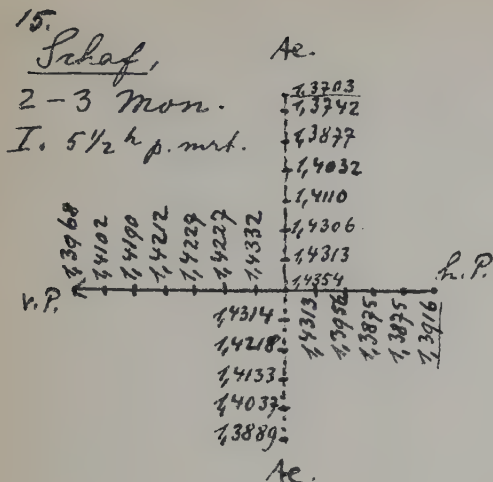 15.
Schaf,
2-3 Mon.
I. 5 1/2 h p. mrt.
Ae.
1,3703
1,3742
1,3877
1,4032
1,4110
1,4306
1,4313
1,4354
v.P.
1,3968
1,4102
1,4190
1,4212
1,4229
1,4227
1,4332
h.P.
1,4313
1,3956
1,3875
1,3875
1,3916
1,4314
1,4218
1,4133
1,4037
1,3889
Ae.